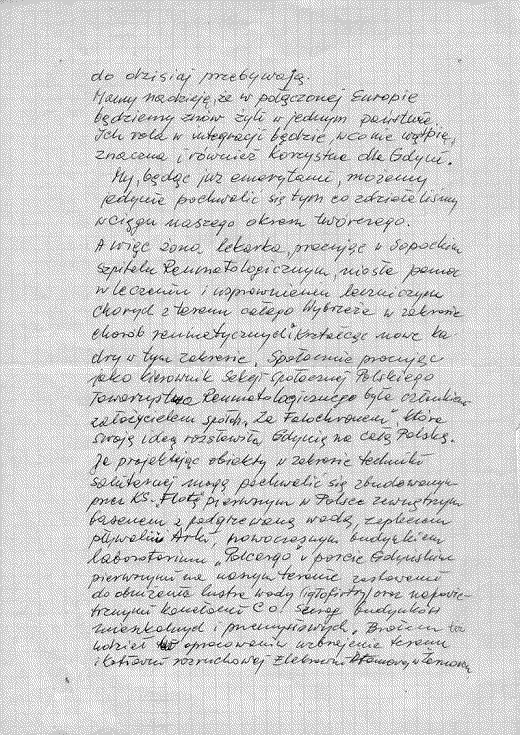 do dzisiaj przebywają.
Mamy nadzieję, że w połączonej Europie
będziemy znów żyli w jednym państwie.
Ich rola w integracji będzie, w co nie wątpię,
znaczna i również korzystna dla Gdyni.
My, będąc już emerytami, możemy
jedynie pochwalić się tym co zdziałaliśmy
w ciągu naszego okresu twórczego.
A więc żona lekarka, pracując w Sopockim
Szpitalu Reumatologicznym, niosła pomoc
w leczeniu i usprawnieniu leczniczym
chorych z terenu całego Wybrzeża w zakresie
chorób reumatycznych i kształcąc nowe ka-
dry w tym zakresie. Społecznie pracując
jako kierownik Sekcji społecznej Polskiego
Towarzystwa Reumatologicznego była członkiem
założycielem społ. "Za Falochronem", która
swoją ideą rozsławiła Gdynię na całą Polskę.
Ja projektując obiekty w zakresie techniki
sanitarnej mogę pochwalić się zbudowanym
przez KS. "Flota" pierwszym w Polsce zewnętrznym
basenem z podgrzewaną wodą, zapleczem
pływalni Arki, nowoczesnym budynkiem
laboratorium "Polcargo" w porcie Gdyńskim
pierwszymi na naszym terenie zastosowani
do obniżenia lustra wody (igłofiltry) oraz napowie-
trznymi kanałami C.O. Szereg budynków
mieszkalnych i przemysłowych. Brałem też
udział w opracowaniu uzbrojenia terenu
i kotłowni rozruchowej Elektrowni Atomowej w Żarnowcu